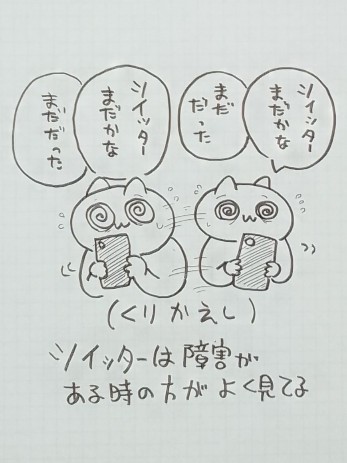 ツイッター
まだかな
まだ
だった
ツイッター
まだかな
まだだった
(くりかえし)
ツイッターは障害が
ある時の方がよく見てる